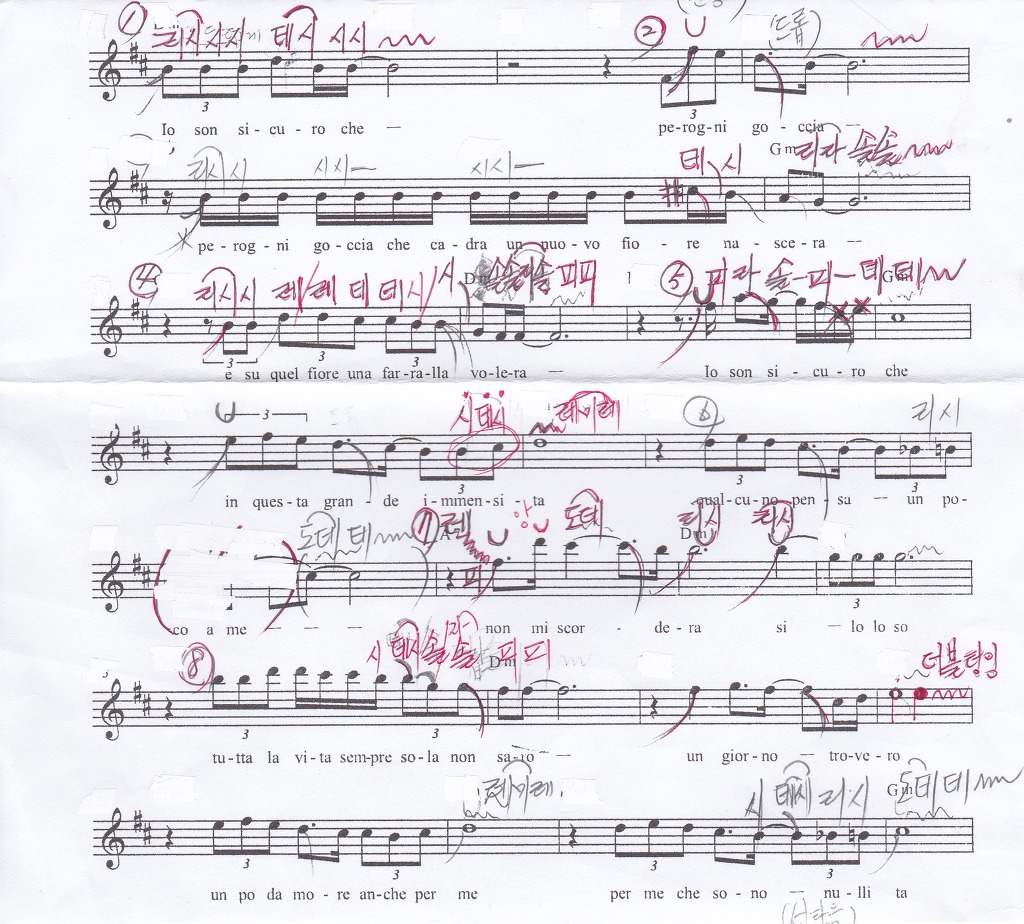 ① 리시시 테시 시시 ②
3 3
Io son si - cu - ro che — pe-rog-ni go - ccia —
Gm 리라 솔솔
리시시 시시— 시시— 테 시
pe - rog - ni go - ccia che ca - dra un nuo - vo fio - re na - sce - ra —
④ 리시시 레/레 테 테시/시 Dm 솔솔 피피 ⑤ 피라 솔-피-테테 Gm
3 3 3
e su quel fiore una far-ra-lla vo-le-ra — Io son si - cu - ro che
3 시테시 레미레 ⑥ 리시
3 3
in ques-ta gran - de i-mmen-si - ta qual-cu-no pen - sa — un po-
도테 테 ⑦ 레 피 도테 리시 Dm 리시
3
co a me — — — non mi scor - de - ra si — lo lo so
⑧ 시 테시 솔 솔 Dm 피 피 더블텅잉
5
3 3 3
tu-tta la vi-ta sem-pre so-la non sa-ro — un gior-no — tro-ve-ro
레미레 시 테시 리시 Gm 도테 테
3 3 3 3
un po da mo - re an-che per me per me che so - no — nu - lli ta